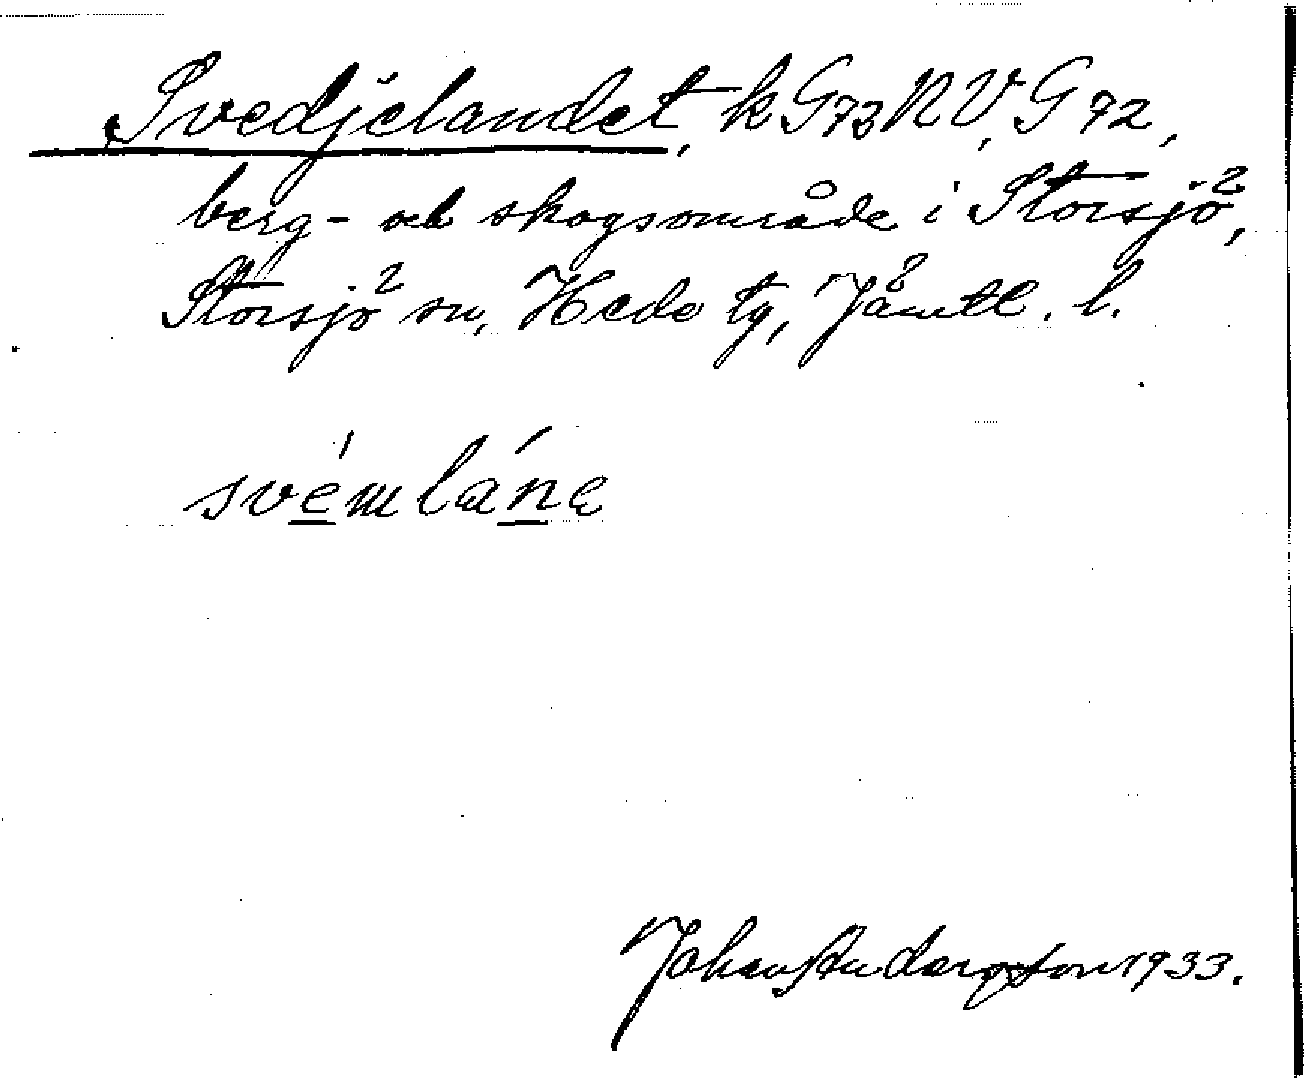 Svedjelandet, k G73 NV, G 72,
berg- och skogsområde i Storsjö 2,
Storsjö 2 sn, Hede tg, Jämtl. l.
svémláne
Johan Anderson 1933.